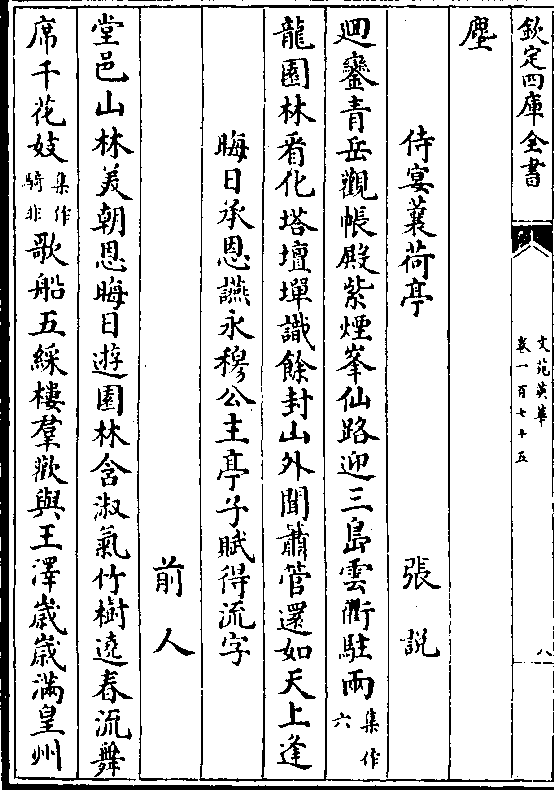 欽定四庫全書
文苑英華
卷一百七十五
八
塵
侍宴蘘荷亭 張説
廻鑾青岳觀帳殿紫煙峯仙路迎三島雲衢駐兩集作六
龍園林看化塔壇墠識餘封山外聞蕭管還如天上逢
晦日承恩讌永穆公主亭子賦得流字
前人
堂邑山林美朝恩晦日遊園林含淑氣竹樹遶春流舞
席千花妓集作騎非歌船五綵樓羣歡與王澤歳歳滿皇州